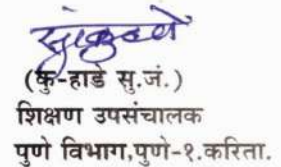 (कु-हाडे सु.जं.)
शिक्षण उपसंचालक
पुणे विभाग,पुणे-१.करिता.